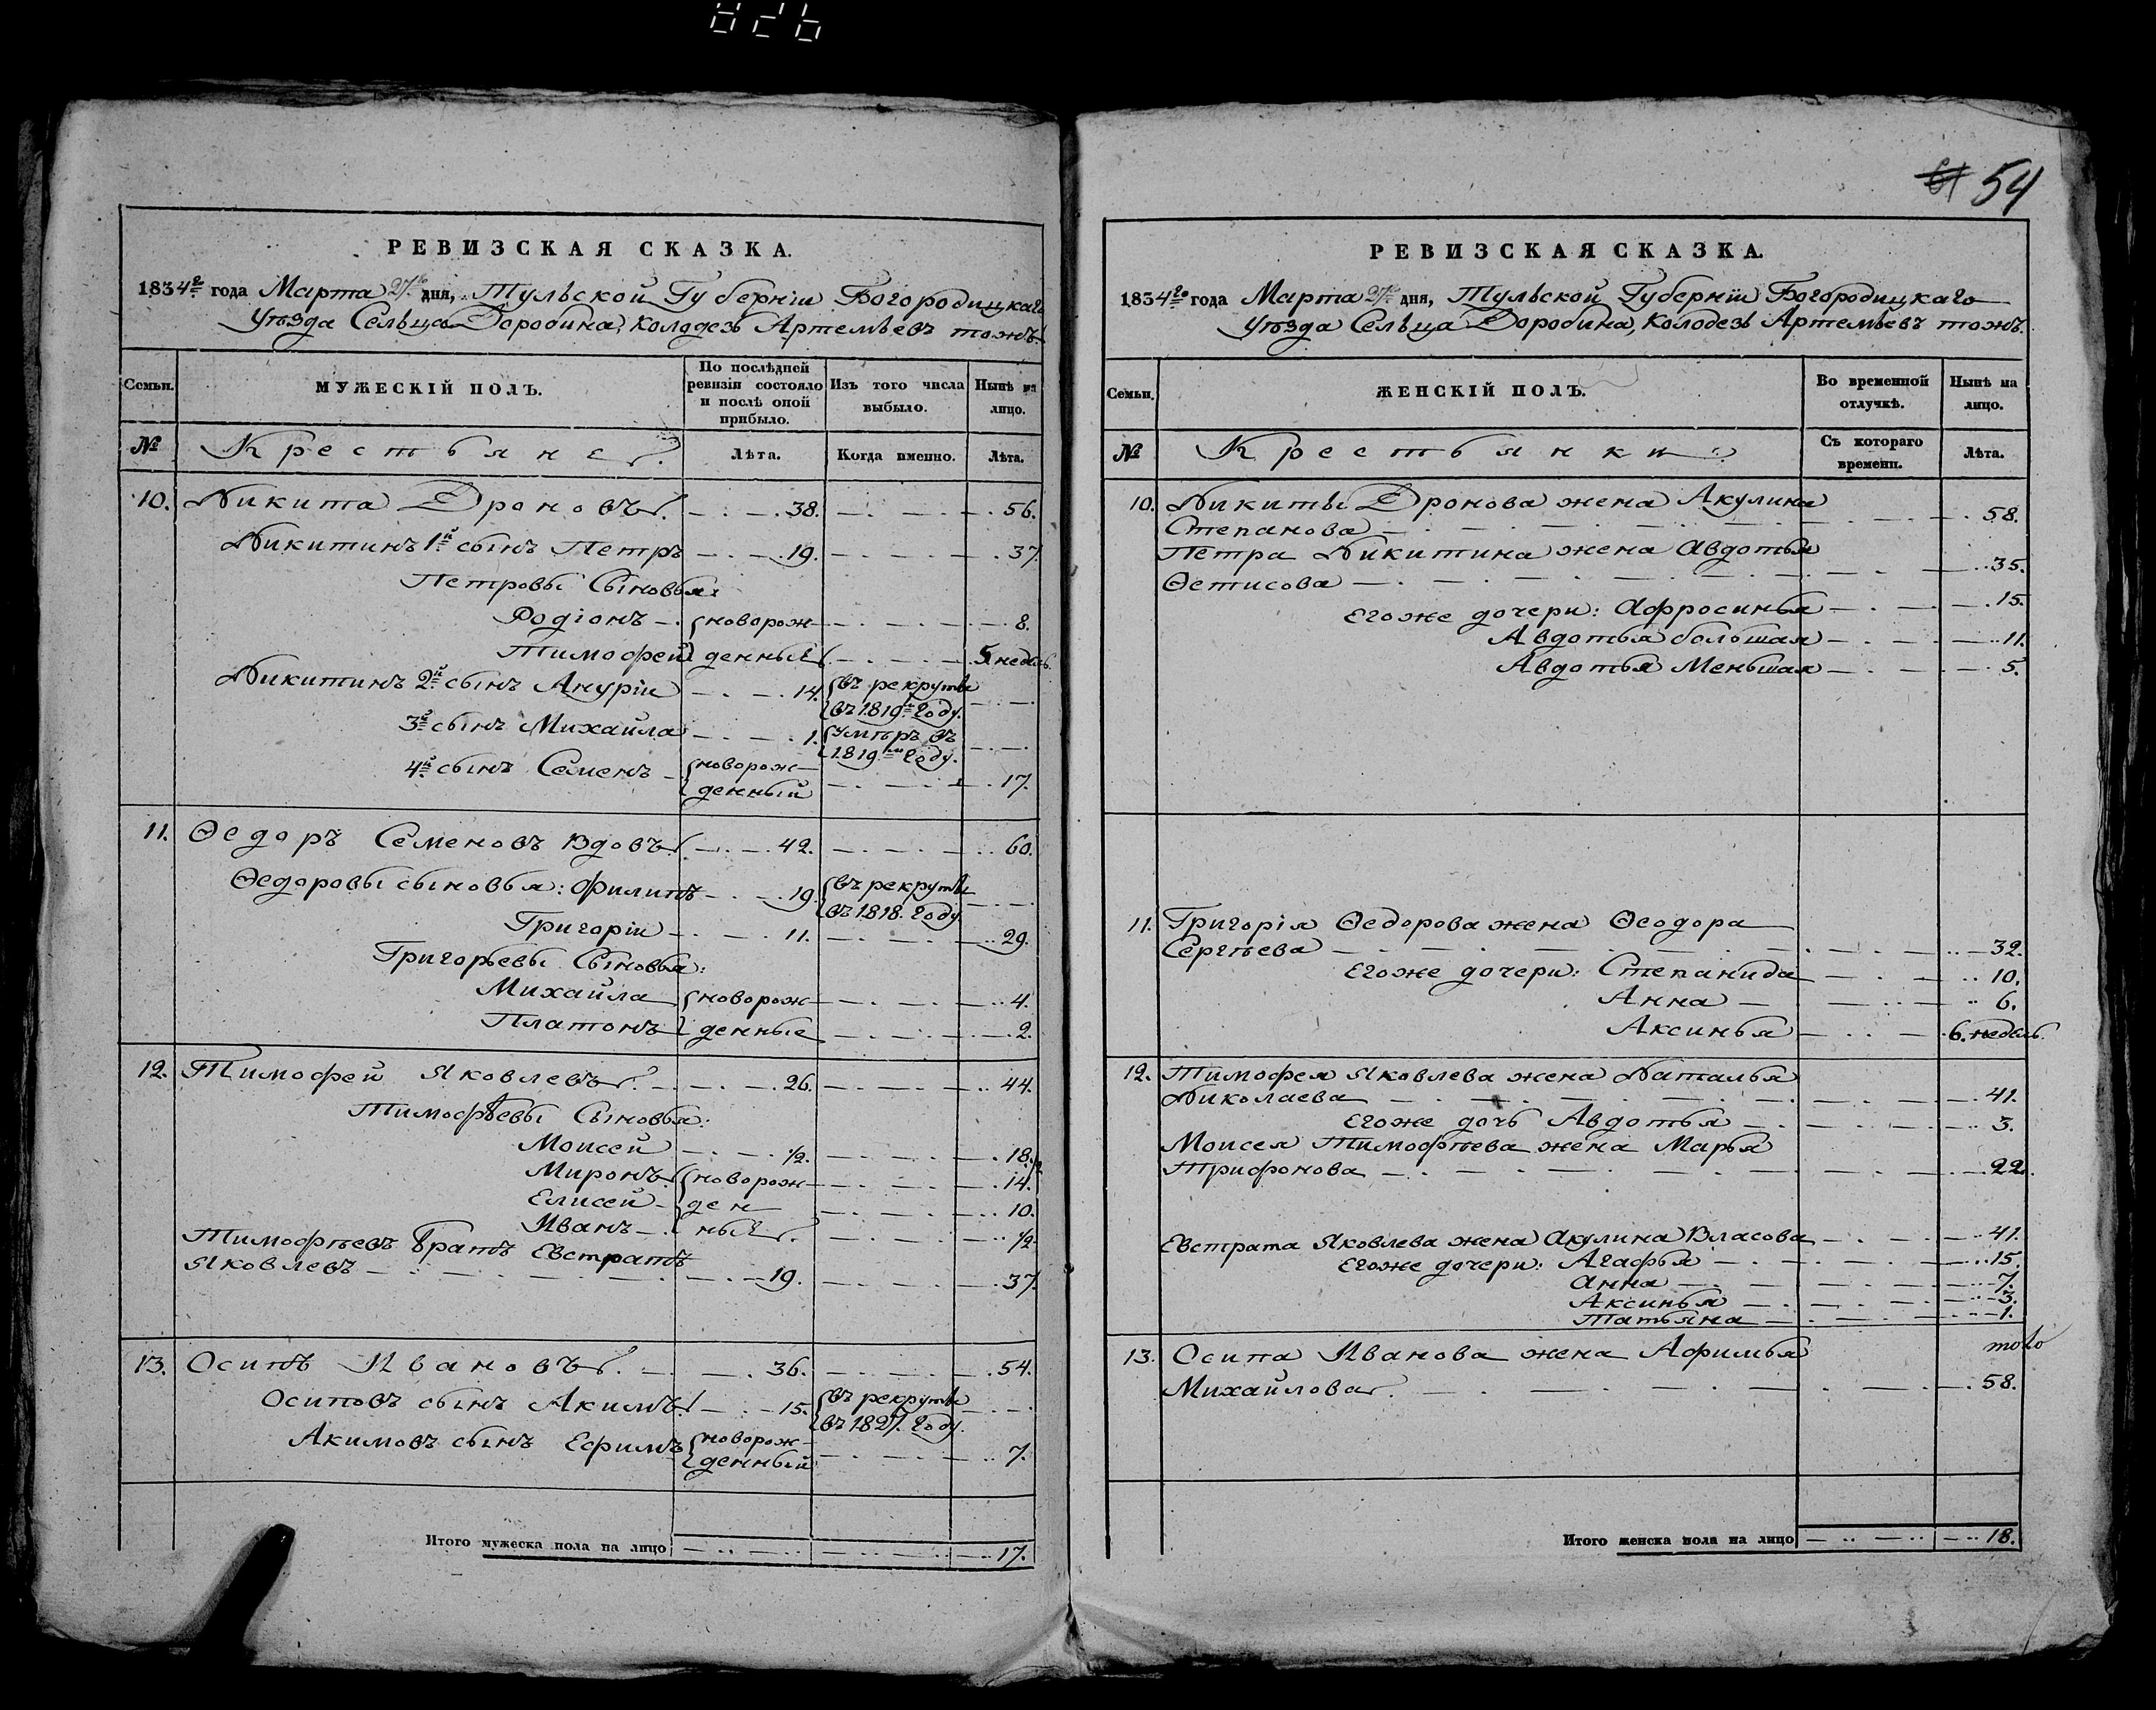 54
РЕВИЗСКАЯ СКАЗКА.
1834го года Марта 27го дня, Тульской Губерніи Богородицкаго
Уѣзда Сельца Доробина, Колодезь Артемьевъ тожъ
Семьи. МУЖЕСКІЙ ПОЛЪ. По послѣдней ревизіи состояло и послѣ оной прибыло. Изъ того числа выбыло. Нынѣ на лицо.
№ Крестьяне. Лѣта. Когда именно. Лѣта.
10. Никита Дроновъ. 38. 56.
Никитинъ 1й сынъ Петръ 19. 37.
Петровы Сыновья:
Родіонъ новорож 8.
Тимофей денныя 5 недель.
Никитинъ 2й сынъ Анурій 14. въ рекруты
въ 1819м году.
3й сынъ Михайла 1. умѣръ въ
1819м году.
4й сынъ Семенъ новорож-
денный 17.
11. Ѳедоръ Семеновъ Вдовъ 42. 60.
Ѳедоровы сыновья: Филипъ 19. въ рекруты
въ 1818. году
Григорій 11. 29.
Григорьевы Сыновья:
Михайла новорож 4.
Платонъ денные 2.
12. Тимофей Яковлевъ. 26. 44.
Тимофѣевы Сыновья:
Моисей 1/2. 18 1/2
Миронъ новорож 14.
Елисей ден 10.
Иванъ ныя. 1/2
Тимофѣевъ братъ Евстратъ
Яковлевъ 19. 37.
13. Осипъ Ивановъ. 36. 54.
Осиповъ сынъ Акимъ 15. въ рекруты
въ 1827. году.
Акимовъ сынъ Ефимъ новорож-
денный 7.
Итого мужеска пола на лицо 17.
РЕВИЗСКАЯ СКАЗКА.
1834го года Марта 27го дня, Тульской Губерніи Богородицкаго
Уѣзда Сельца Доробина, Колодезь Артемьевъ тожъ.
Семьи. ЖЕНСКІЙ ПОЛЪ. Во временной отлучкѣ. Нынѣ на лицо.
№ Крестьянки: Съ котораго времени. Лѣта.
10. Никиты Дронова жена Акулина
Степанова 58.
Петра Никитина жена Авдотья
Ѳетисова 35.
Егоже дочери: Афросинья 15.
Авдотья большая 11.
Авдотья Меньшая 5.
11. Григорія Ѳедорова жена Ѳеодора
Сергѣева 32.
Егоже дочери: Степанида 10.
Анна 6.
Аксинья 6. недель.
12. Тимофея Яковлева жена Наталья
Николаева 41.
Егоже дочь Авдотья 3.
Моисея Тимофѣева жена Марья
Трифонова 22.
Евстрата Яковлева жена Акулина Власова 41.
Егоже дочери: Агафья 15.
Анна 7.
Аксинья 3.
Татьяна 1.
13. Осипа Иванова жена Афимья
Михайлова. 58.
Итого женска пола на лицо 18.